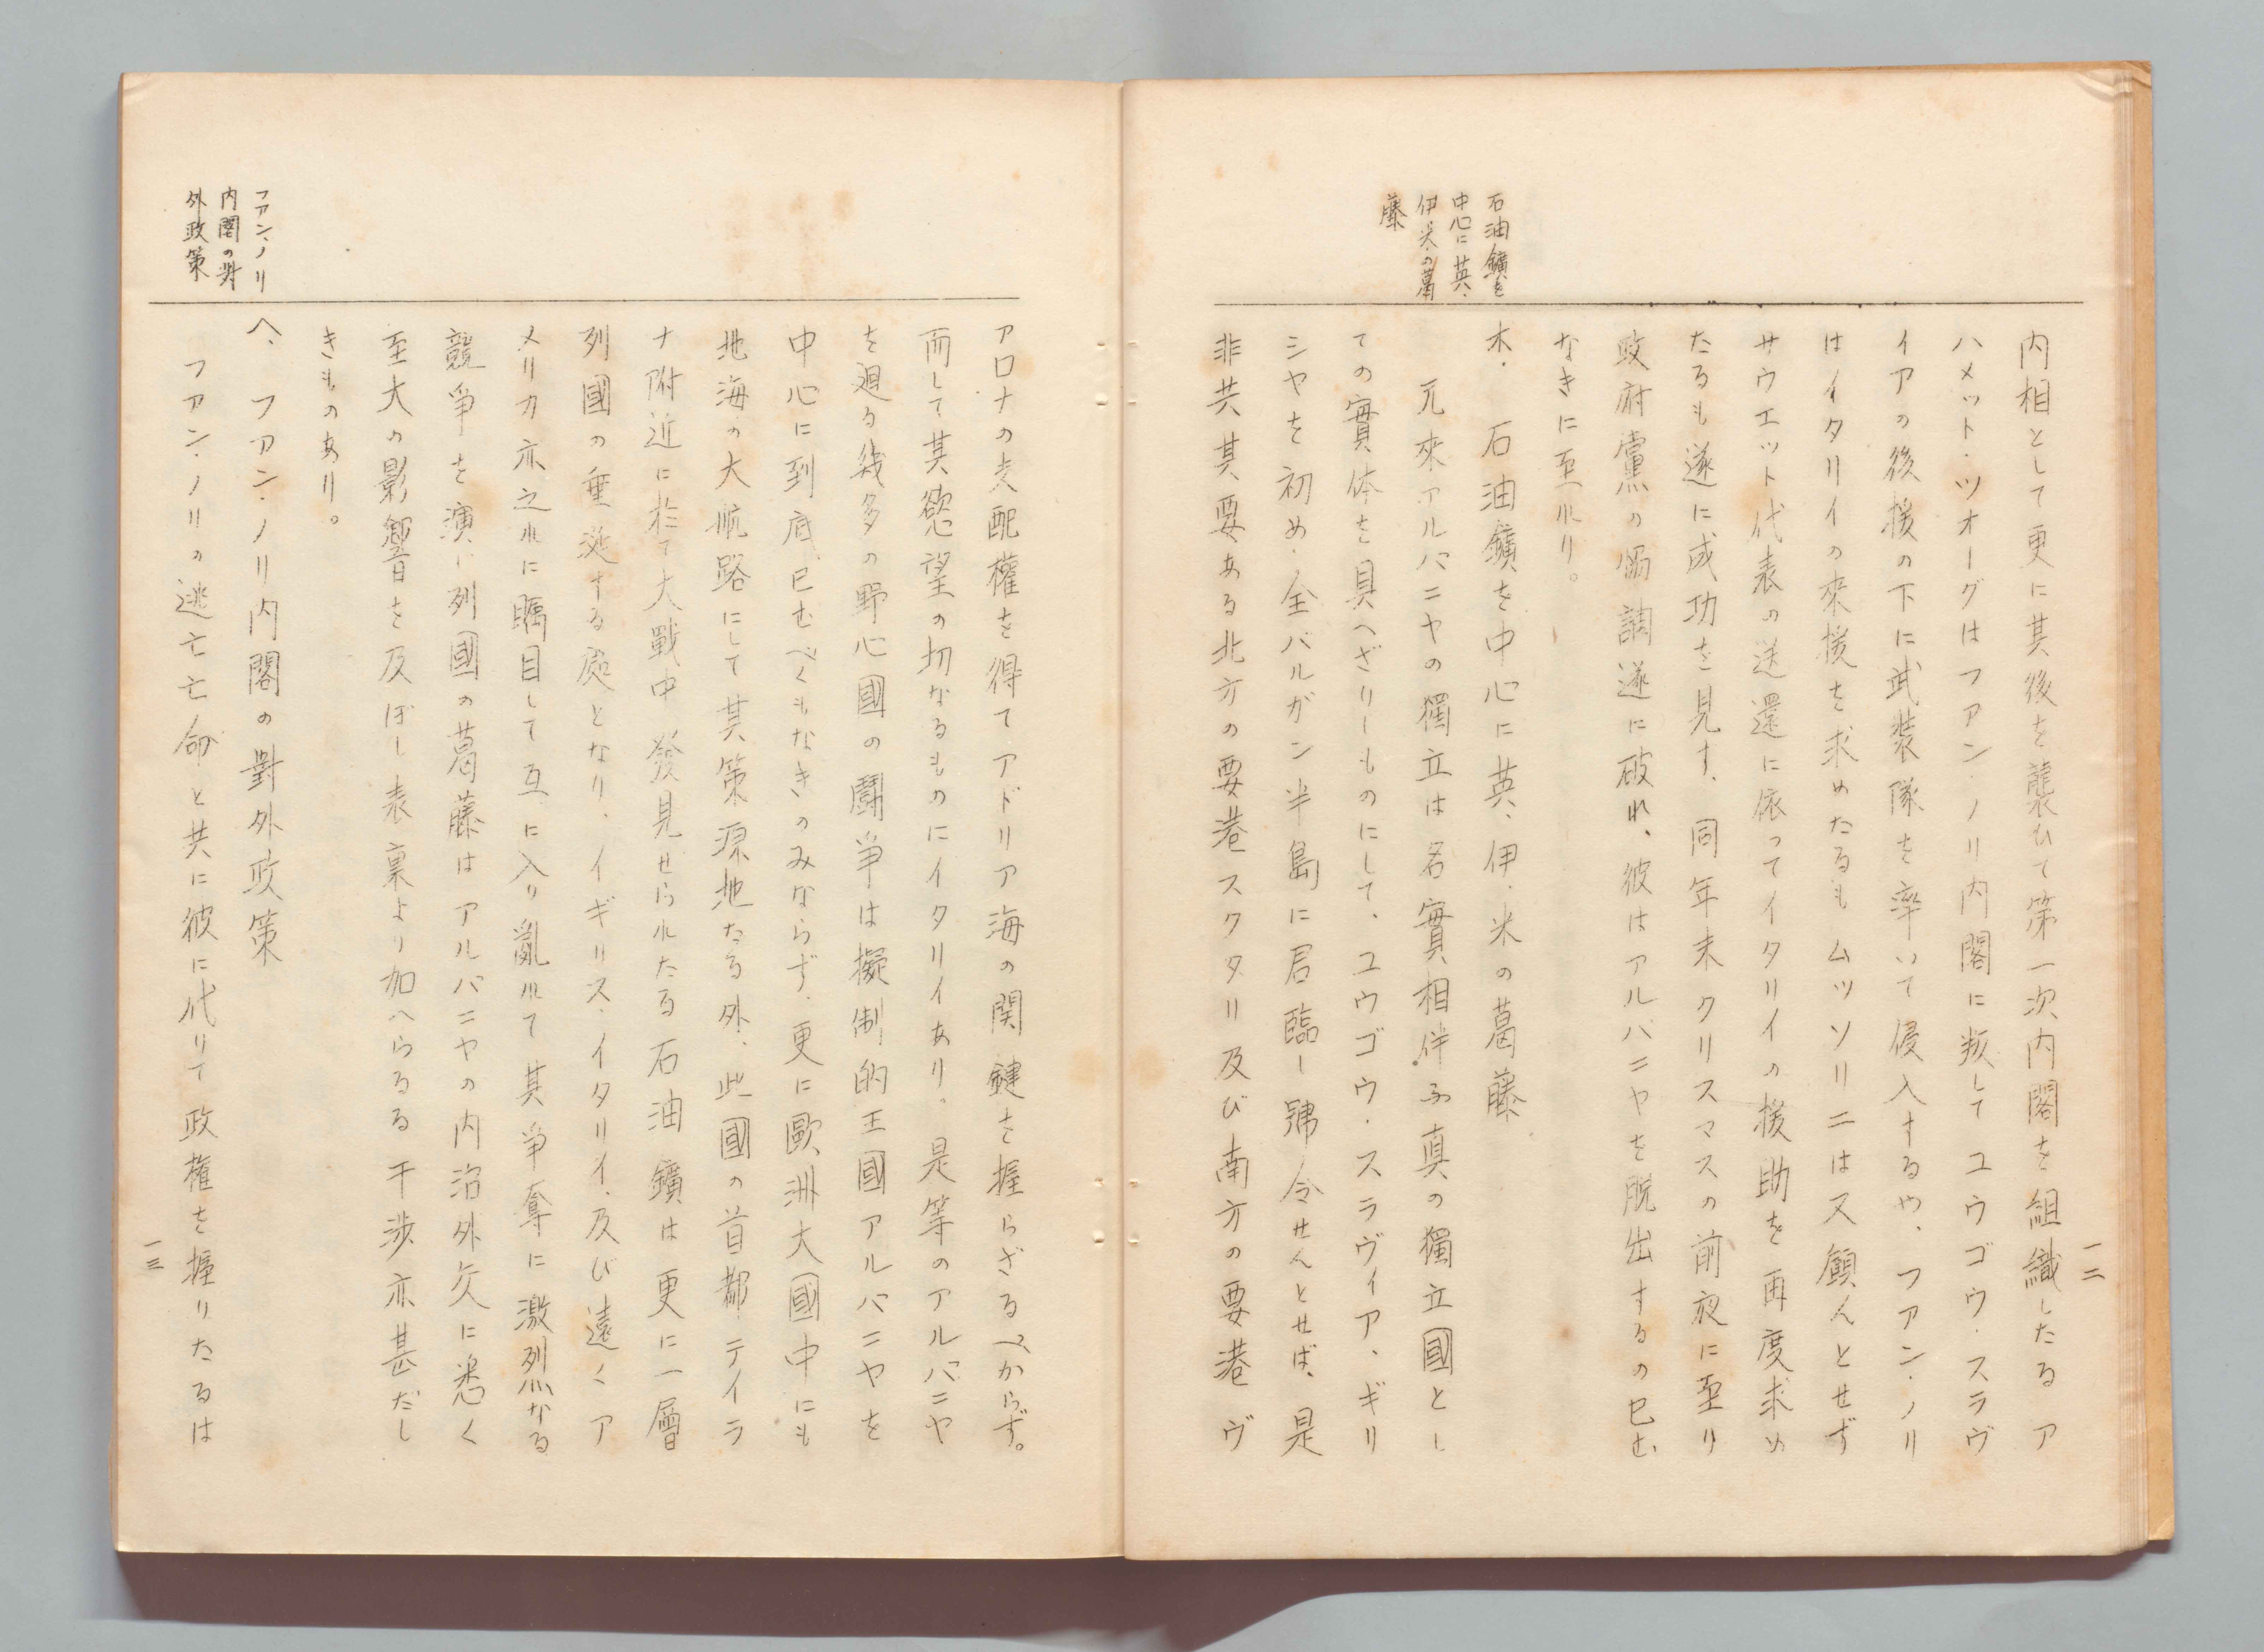 一二
石油鑛を
中心に英、
伊、米の葛
藤
内相として更に其後を襲ひて第一次内閣を組織したるア
ハメット・ツオーグはフアン・ノリ内閣に叛してユウゴウ・スラヴ
イアの後援の下に武裝隊を率いて侵入するや、フアン・ノリ
はイタリイの來援を求めたるもムツソリニは又顧んとせず
サウエット代表の送還に依ってイタリイの援助を再度求め
たるも遂に成功を見す、同年末クリスマスの前夜に至り
政府黨の策謀遂に破れ、彼はアルバニヤを脱出するの已む
なきに至れり。
ホ、石油鑛を中心に英、伊、米の葛藤
元來アルバニヤの獨立は名實相伴ふ真の獨立國とし
ての實体を具へざりしものにして、ユウゴウ・スラヴイア、ギリ
シヤを初め、全バルガン半島に君臨し號令せんとせば、是
非共其要ある北方の要港スクタリ及び南方の要港ヴ
アロナの支配權を得てアドリア海の関鍵を握らざるべからず。
而して其慾望の切なるものにイタリイあり。是等のアルバニヤ
を廻る幾多の野心國の鬪爭は擬制的王國アルバニヤを
中心に到底已むべくもなきのみならず、更に歐洲大國中にも
北海の大航路にして其策源地たる外、此國の首都テイラ
ナ附近に於て大戰中發見せられたる石油鑛は更に一層
列國の垂涎する處となり、イギリス、イタリイ、及び遠くア
メリカ亦之れに矚目して互に入り亂れて其爭奪に激烈なる
競爭を演じ列國の葛藤はアルバニヤの内治外交に悉く
至大の影響を及ぼし表裏より加へらるる干渉亦甚だし
きものあり。
フアン・ノリ
内閣の對
外政策
ヘ、フアン・ノリ内閣の對外政策
フアン・ノリの逃亡亡命と共に彼に代りて政権を握りたるは
一三